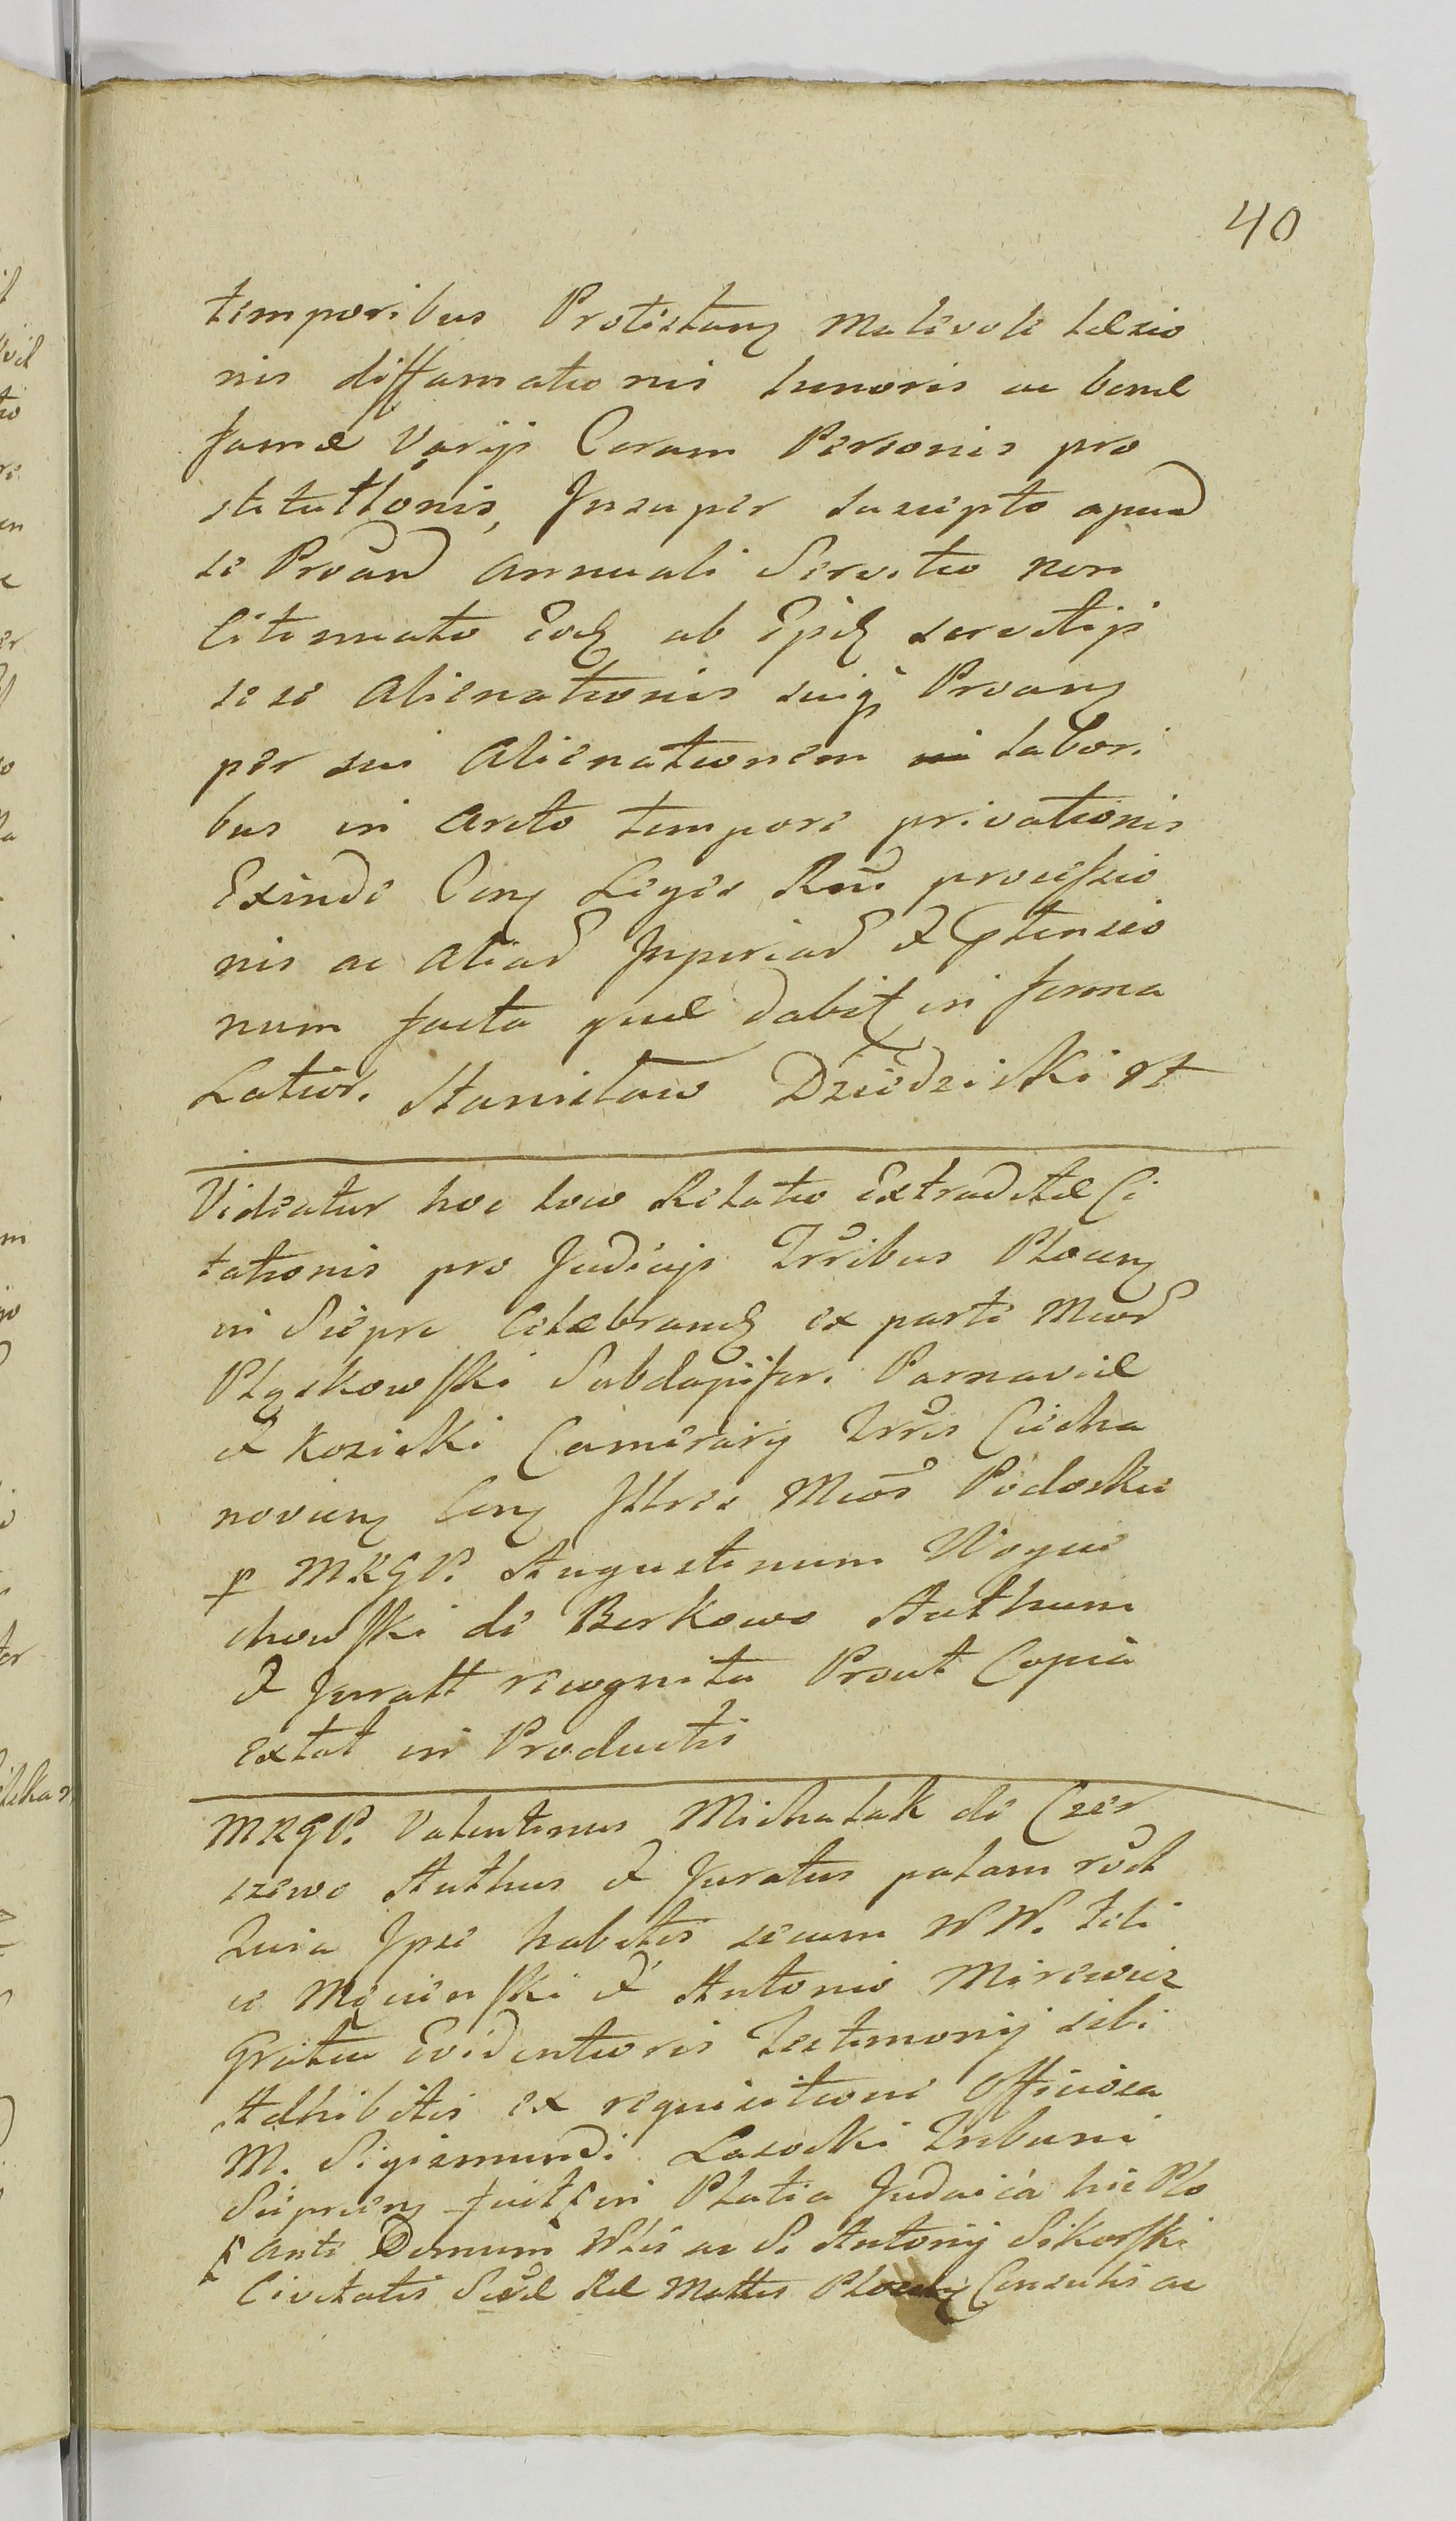 40
temporibus Protestang malevole læsio
nis diffamationis honoris ac bonæ
famæ Varijs Coram Personis pro
stitutionis, Insuper suscepto apud
se Proand annuali Servitio non
Continuato Eodq ab Ejusdq servitijs
sese Alienationis suiq Proang
per sui Alienationem labori
bus in Arcto tempore privationis
Exinde Cong Leges Rni processio
nis ac aliar Injuriar & Ptensio
num facta quæ dabitq in forma
Latior. Stanisław Dziedzicki st
Videatur hoc loco Relatio Extraditæ Ci
tationis pro Judicijs Trribus Plocen
in Sieprc Celebrandq ex parte Mcor
Pląskowski Subdapiferi Parnaviæ
& Kozicki Camerarij Trris Ciecha
novieng Cong Illres Mcos Podoskie
p MRGP. Augustinum Woycie
chowski de Borkowo Authum
& Juratt recognita Prout Copia
extat in Productis
MRGP. Valentinus Michalak de Czer
szewo Authus & Juratus palam rect
Quia Ipse habitis secum WW. Feli
ce Męcienski & Antonio Mirewicz
Gratia Evidentioris Testimonij sibi
Adhibitis ex requisitione Officiosa
M. Sigismundi Lasocki Tribuni
Sieprceng fuit in Platia Judaica hic Plo
ante Domum Nblis ac S. Antonij Sikorski
Civitatis Sacræ Ræ Mattis Consulis ac